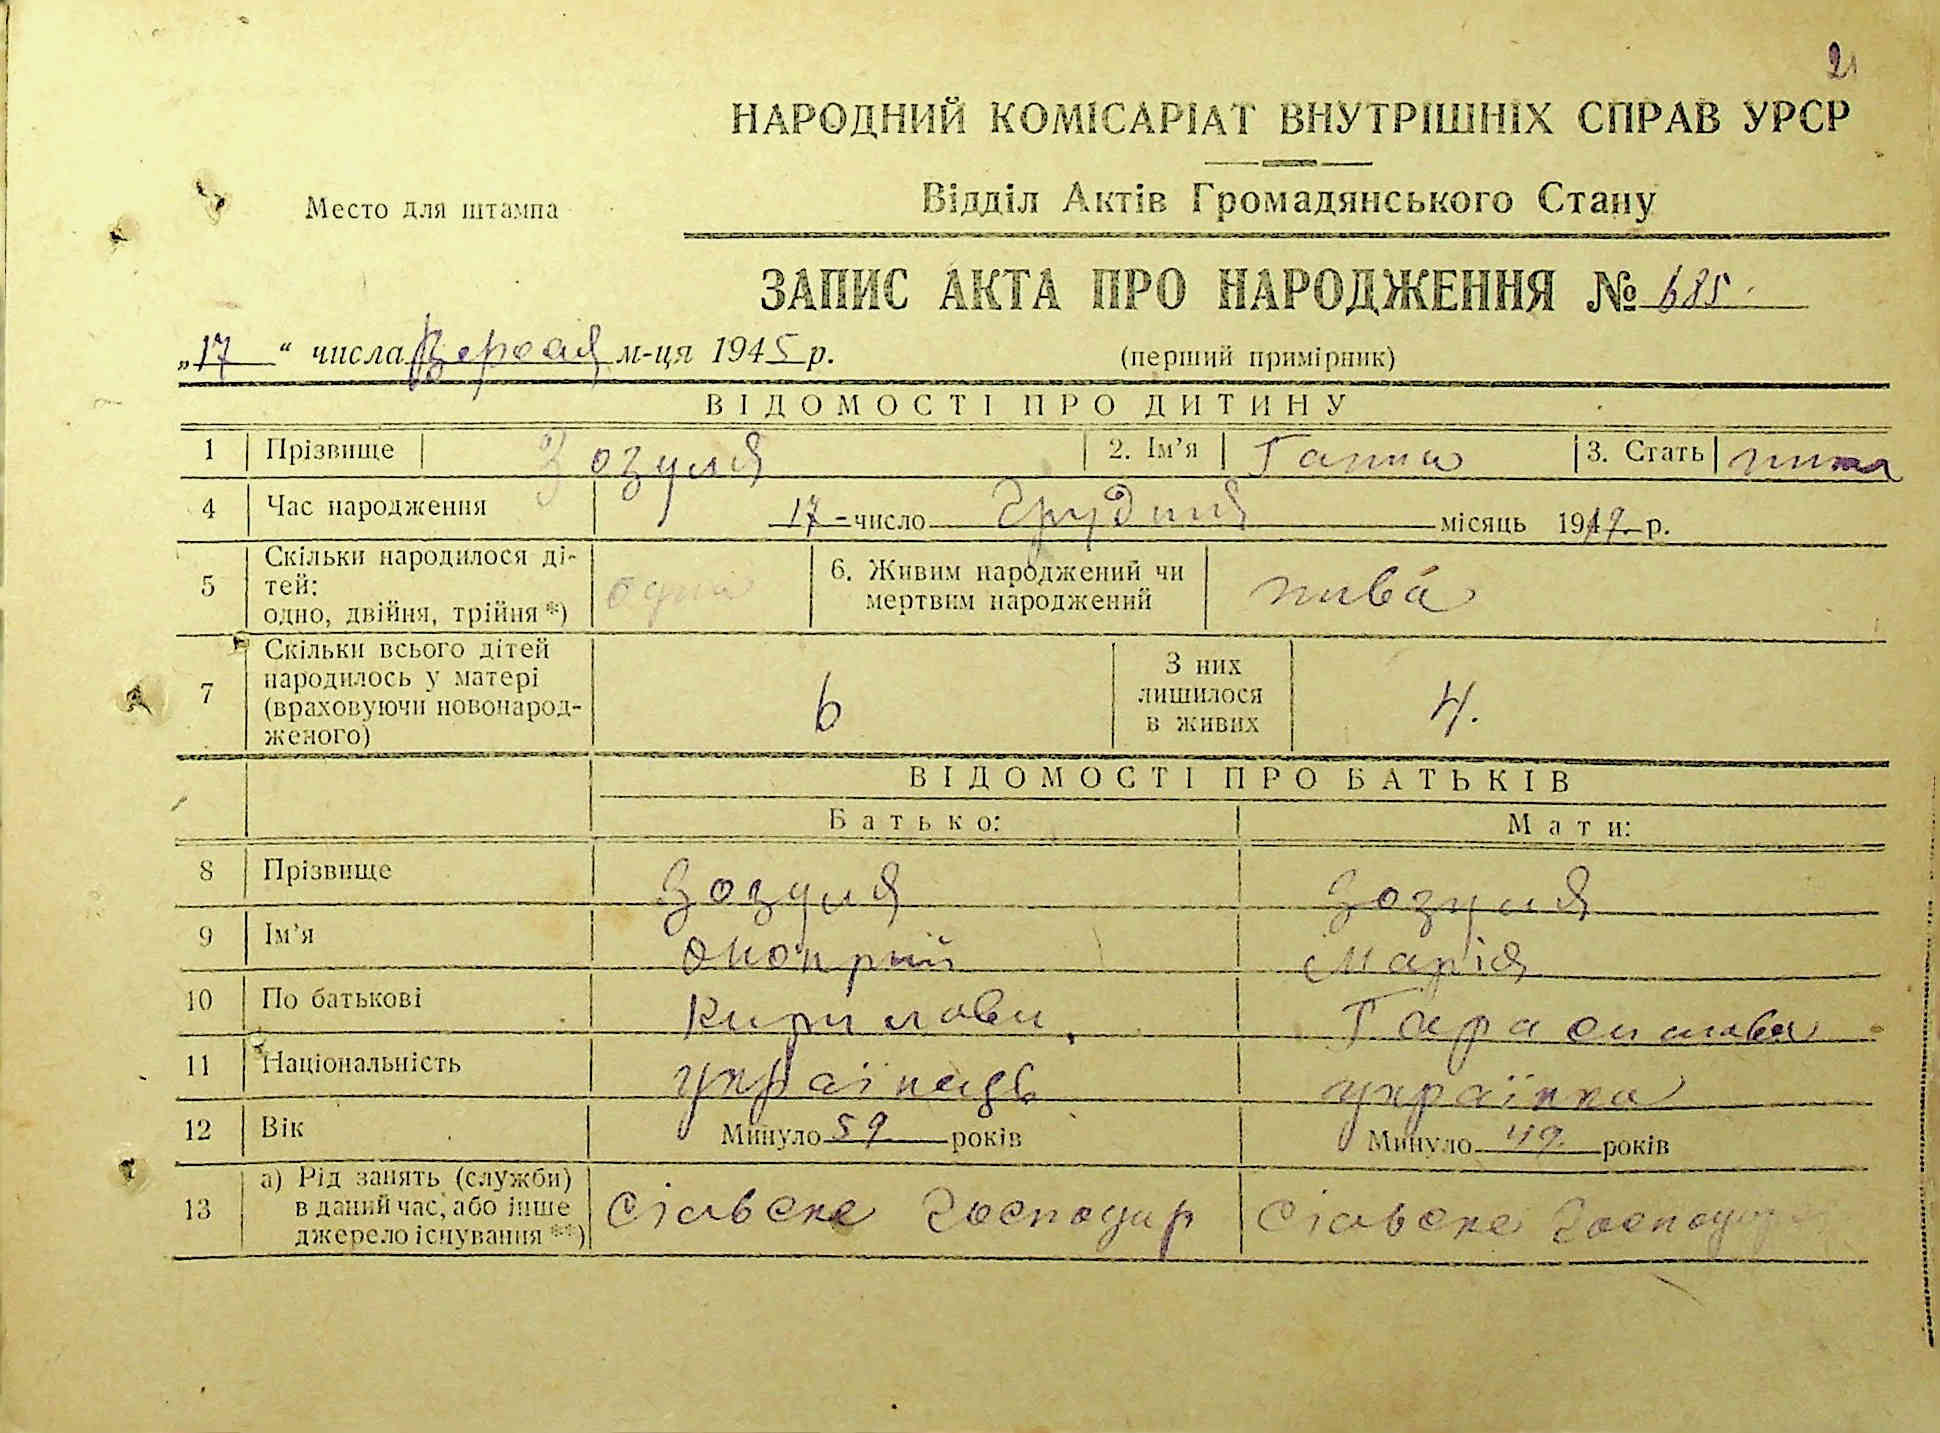 21
НАРОДНИЙ КОМІСАРІАТ ВНУТРІШНІХ СПРАВ УРСР
Место для штампа
Відділ Актів Громадянського Стану
ЗАПИС АКТА ПРО НАРОДЖЕННЯ № 685.
„17“ числа м-ця 1945 р.
(перший примірник)
ВІДОМОСТІ ПРО ДИТИНУ
1 Прізвище Зозуля 2. Ім’я Ганна 3. Стать
4 Час народження 17 число Грудня місяць 19 р.
5 Скільки народилося ді-
тей:
одно, двійня, трійня *) одна 6. Живим народжений чи
мертвим народжений жива
7 Скільки всього дітей
народилось у матері
(враховуючи новонарод-
женого) 6 З них
лишилося
в живих 4.
ВІДОМОСТІ ПРО БАТЬКІВ
Батько: Мати:
8 Прізвище Зозуля Зозуля
9 Ім’я Онопрій Марія
10 По батькові Кирилови. Гарасимова
11 Національність українець українка
12 Вік Минуло 59 років Минуло 49 років
13 а) Рід занять (служби)
в даний час, або інше
джерело існування **) Сільске господар Сільске господар